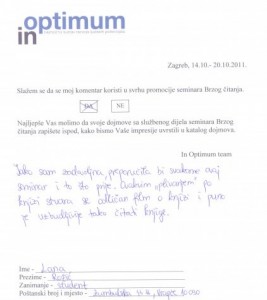 in optimum
Zagreb, 14.10.- 20.10.2011.
Slažem se da se moj komentar koristi u svrhu promocije seminara Brzog čitanja.
DA NE
Najljepše Vas molimo da svoje dojmove sa službenog dijela seminara Brzog
čitanja zapišete ispod, kako bismo Vaše impresije uvrstili u katalog dojmova.
In Optimum team
Jako sam zadovoljna, preporučila bi svakome ovaj
seminar i to što prije. Ovakvim "plivanjem" po
knjizi stvara se odličan film o knjizi i puno
je uzbudljivije tako čitati knjige.
Ime - Lana
Prezime -
Zanimanje - student
Poštanski broj i mjesto - Zagreb 10 000